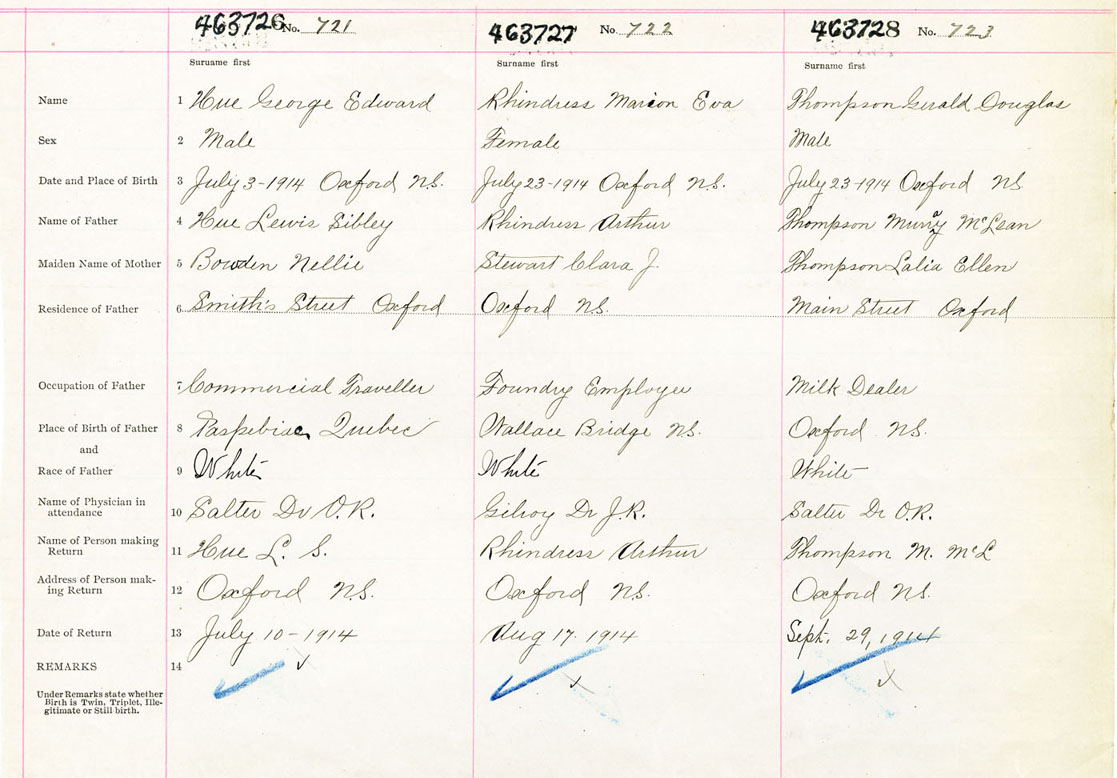 463726 No. 721 463727 No. 722 463728 No. 723
Surname first Surname first Surname first
Name 1 Hue George Edward Rhindress Marion Eva Thompson Gerald Douglas
Sex 2 Male Female Male
Date and Place of Birth 3 July 3-1914 Oxford N.S. July 23-1914 Oxford N.S. July 23-1914 Oxford NS
Name of Father 4 Hue Lewis Sibley Rhindress Arthur Thompson Murray McLean
Maiden Name of Mother 5 Bowden Nellie Stewart Clara J. Thompson Lalia Ellen
Residence of Father 6 Smith's Street Oxford Oxford N.S. Main Street Oxford
Occupation of Father 7 Commercial Traveller Foundry Employee Milk Dealer
Place of Birth of Father 8 Paspebiac Quebec Wallace Bridge N.S. Oxford N.S.
and
Race of Father 9 White White White
Name of Physician in
attendance 10 Salter Dr O.R. Gilroy Dr J.R. Salter Dr O.R.
Name of Person making
Return 11 Hue L. S. Rhindress Arthur Thompson M. McL
Address of Person mak-
ing Return 12 Oxford N.S. Oxford N.S. Oxford N.S.
Date of Return 13 July 10-1914 Aug 17. 1914 Sept. 29, 1914
REMARKS 14
Under Remarks state whether
Birth is Twin, Triplet, Ille-
gitimate or Still birth.